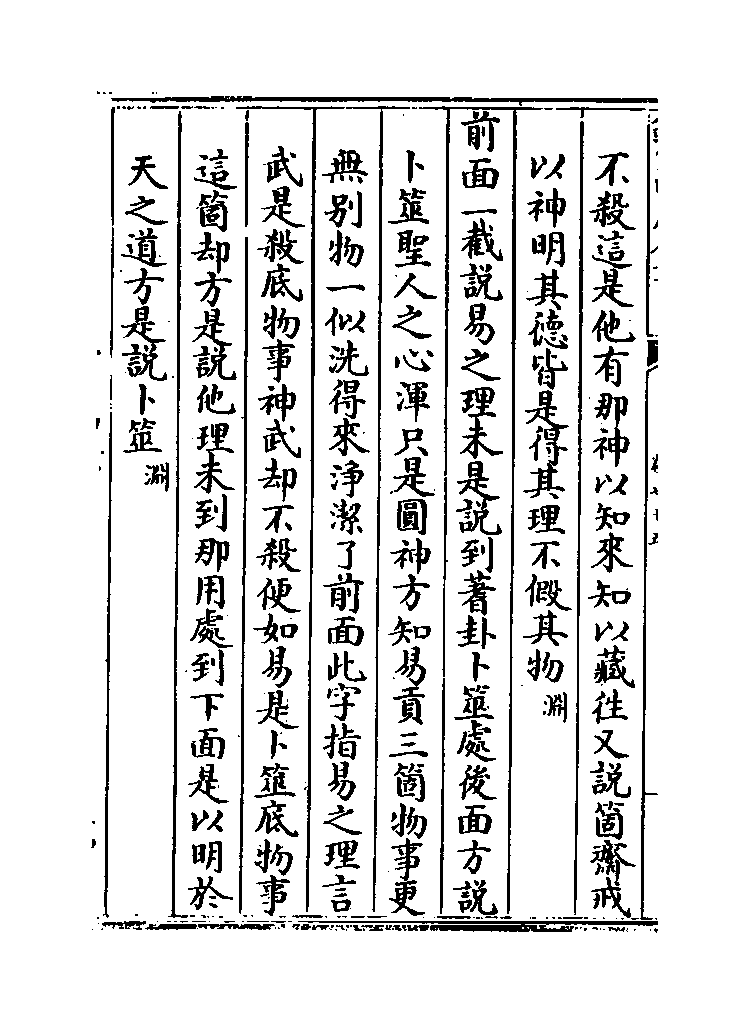 不殺這是他有那神以知來知以藏往又説箇齋戒
以神明其德皆是得其理不假其物淵
前面一截説易之理未是説到蓍卦卜筮處後面方説
卜筮聖人之心渾只是圓神方知易貢三箇物事更
無别物一似洗得來淨潔了前面此字指易之理言
武是殺底物事神武却不殺便如易是卜筮底物事
這箇却方是説他理未到那用處到下面是以明於
天之道方是説卜筮淵